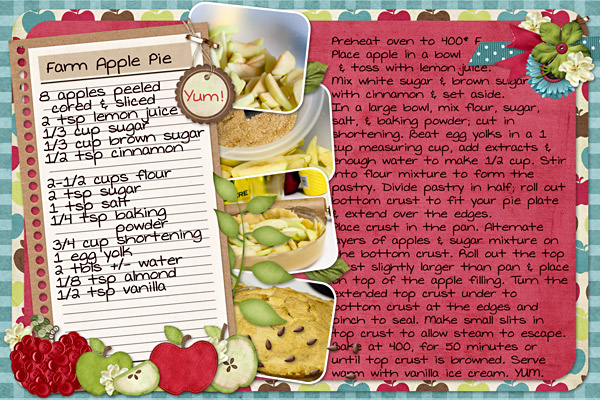 Farm Apple Pie
Yum!
8 apples peeled
cored & sliced
2 tsp lemon juice
1/3 cup sugar
1/3 cup brown sugar
1/2 tsp cinnamon
2-1/2 cups flour
2 tsp sugar
1 tsp salt
1/4 tsp baking
powder
3/4 cup shortening
1 egg yolk
2 tbls +/- water
1/8 tsp almond
1/2 tsp vanilla
Preheat oven to 400* F
Place apple in a bowl
& toss with lemon juice.
Mix white sugar & brown sugar
with cinnamon & set aside.
In a large bowl, mix flour, sugar,
salt, & baking powder; cut in
shortening. Beat egg yolks in a 1
cup measuring cup, add extracts &
enough water to make 1/2 cup. Stir
into flour mixture to form the
pastry. Divide pastry in half; roll out
bottom crust to fit your pie plate
& extend over the edges.
Place crust in the pan. Alternate
layers of apples & sugar mixture on
the bottom crust. Roll out the top
crust slightly larger than pan & place
on top of the apple filling. Turn the
extended top crust under to
bottom crust at the edges and
pinch to seal. Make small slits in
top crust to allow steam to escape.
Bake at 400, for 50 minutes or
until top crust is browned. Serve
warm with vanilla ice cream. YUM.